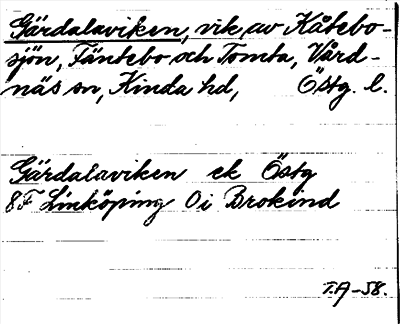 Gärdalaviken, vik av Kåtebo-
sjön, Fäntebo och Tomta, Vård-
näs sn, Kinda hd, Östg. l.
Gärdalaviken ek Östg
8F Linköping 0 i Brokind
T.A-58.